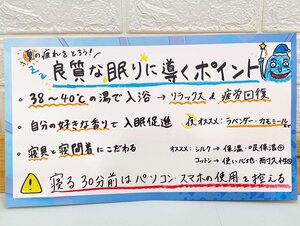 夏の疲れをとろう！
良質な眠りに導くポイント
・38〜40℃の湯で入浴 → リラックス & 疲労回復
・自分の好きな香りで入眠促進 オススメ：ラベンダー・カモミール
・寝具と寝間着にこだわる オススメ：シルク → 保温・吸保湿◎
コットン → 使い心地・耐久性◎
寝る30分前はパソコン・スマホの使用を控える